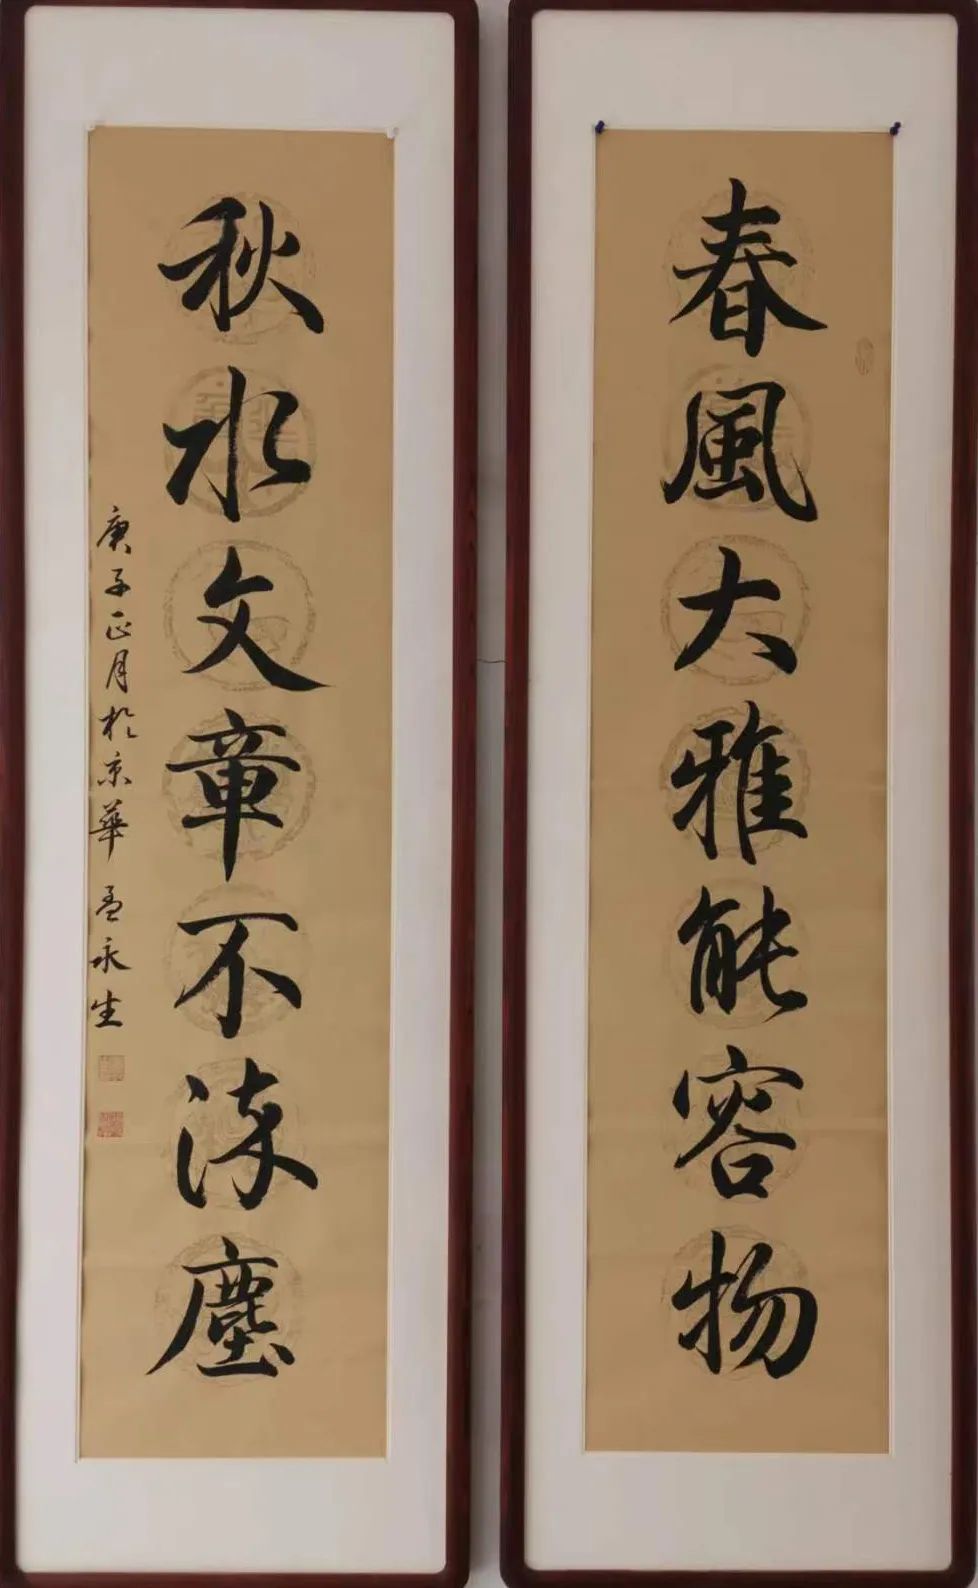 春風大雅能容物
秋水文章不染塵
庚子正月於京華 孟永生